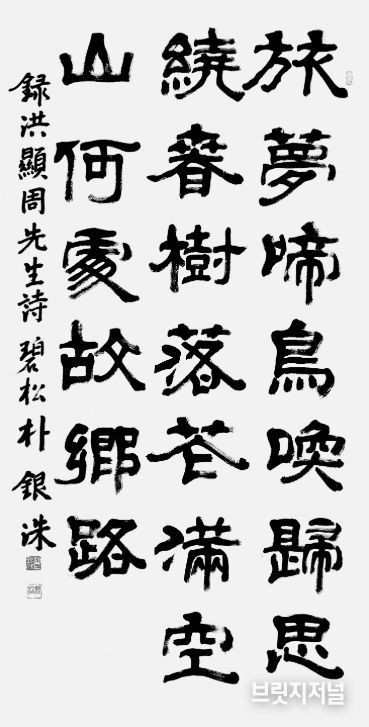 旅夢啼鳥喚歸思
繞春樹落花滿空
山何處故鄉路
録洪顯周先生詩 碧松 朴銀洙
브릿지저널